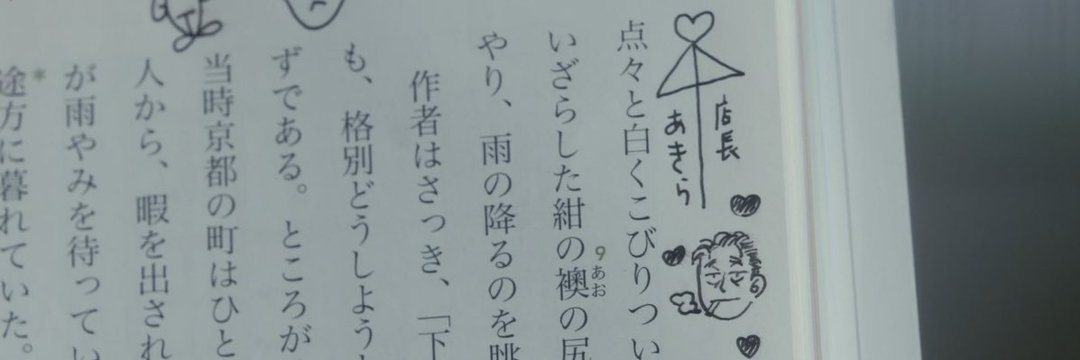 店長
あきら
点々と白くこびりつい
いざらした紺の襖の尻
あお
やり、雨の降るのを眺
作者はさっき、「下
も、格別どうしよう
ずである。ところが
当時京都の町はひと
人から、暇を出され
が雨やみを待ってい
途方に暮れていた。